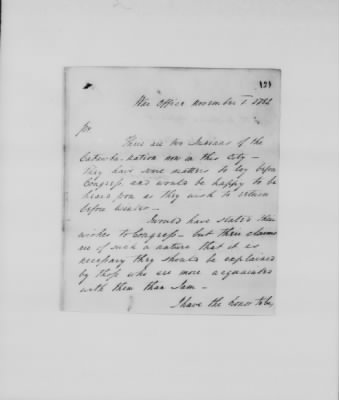 (2)
War Office November 1. 1782
Sir
There are two Indians of the
Catawba nation now in this City –
they have some matters to lay before
Congress, and would be happy to be
heard soon as they wish to return
before winter –
I would have stated their
wishes to Congress – but their claims
are of such a nature that it is
necessary they should be explained
by those who are more acquainted
with them than I am –
I have the honor to be,